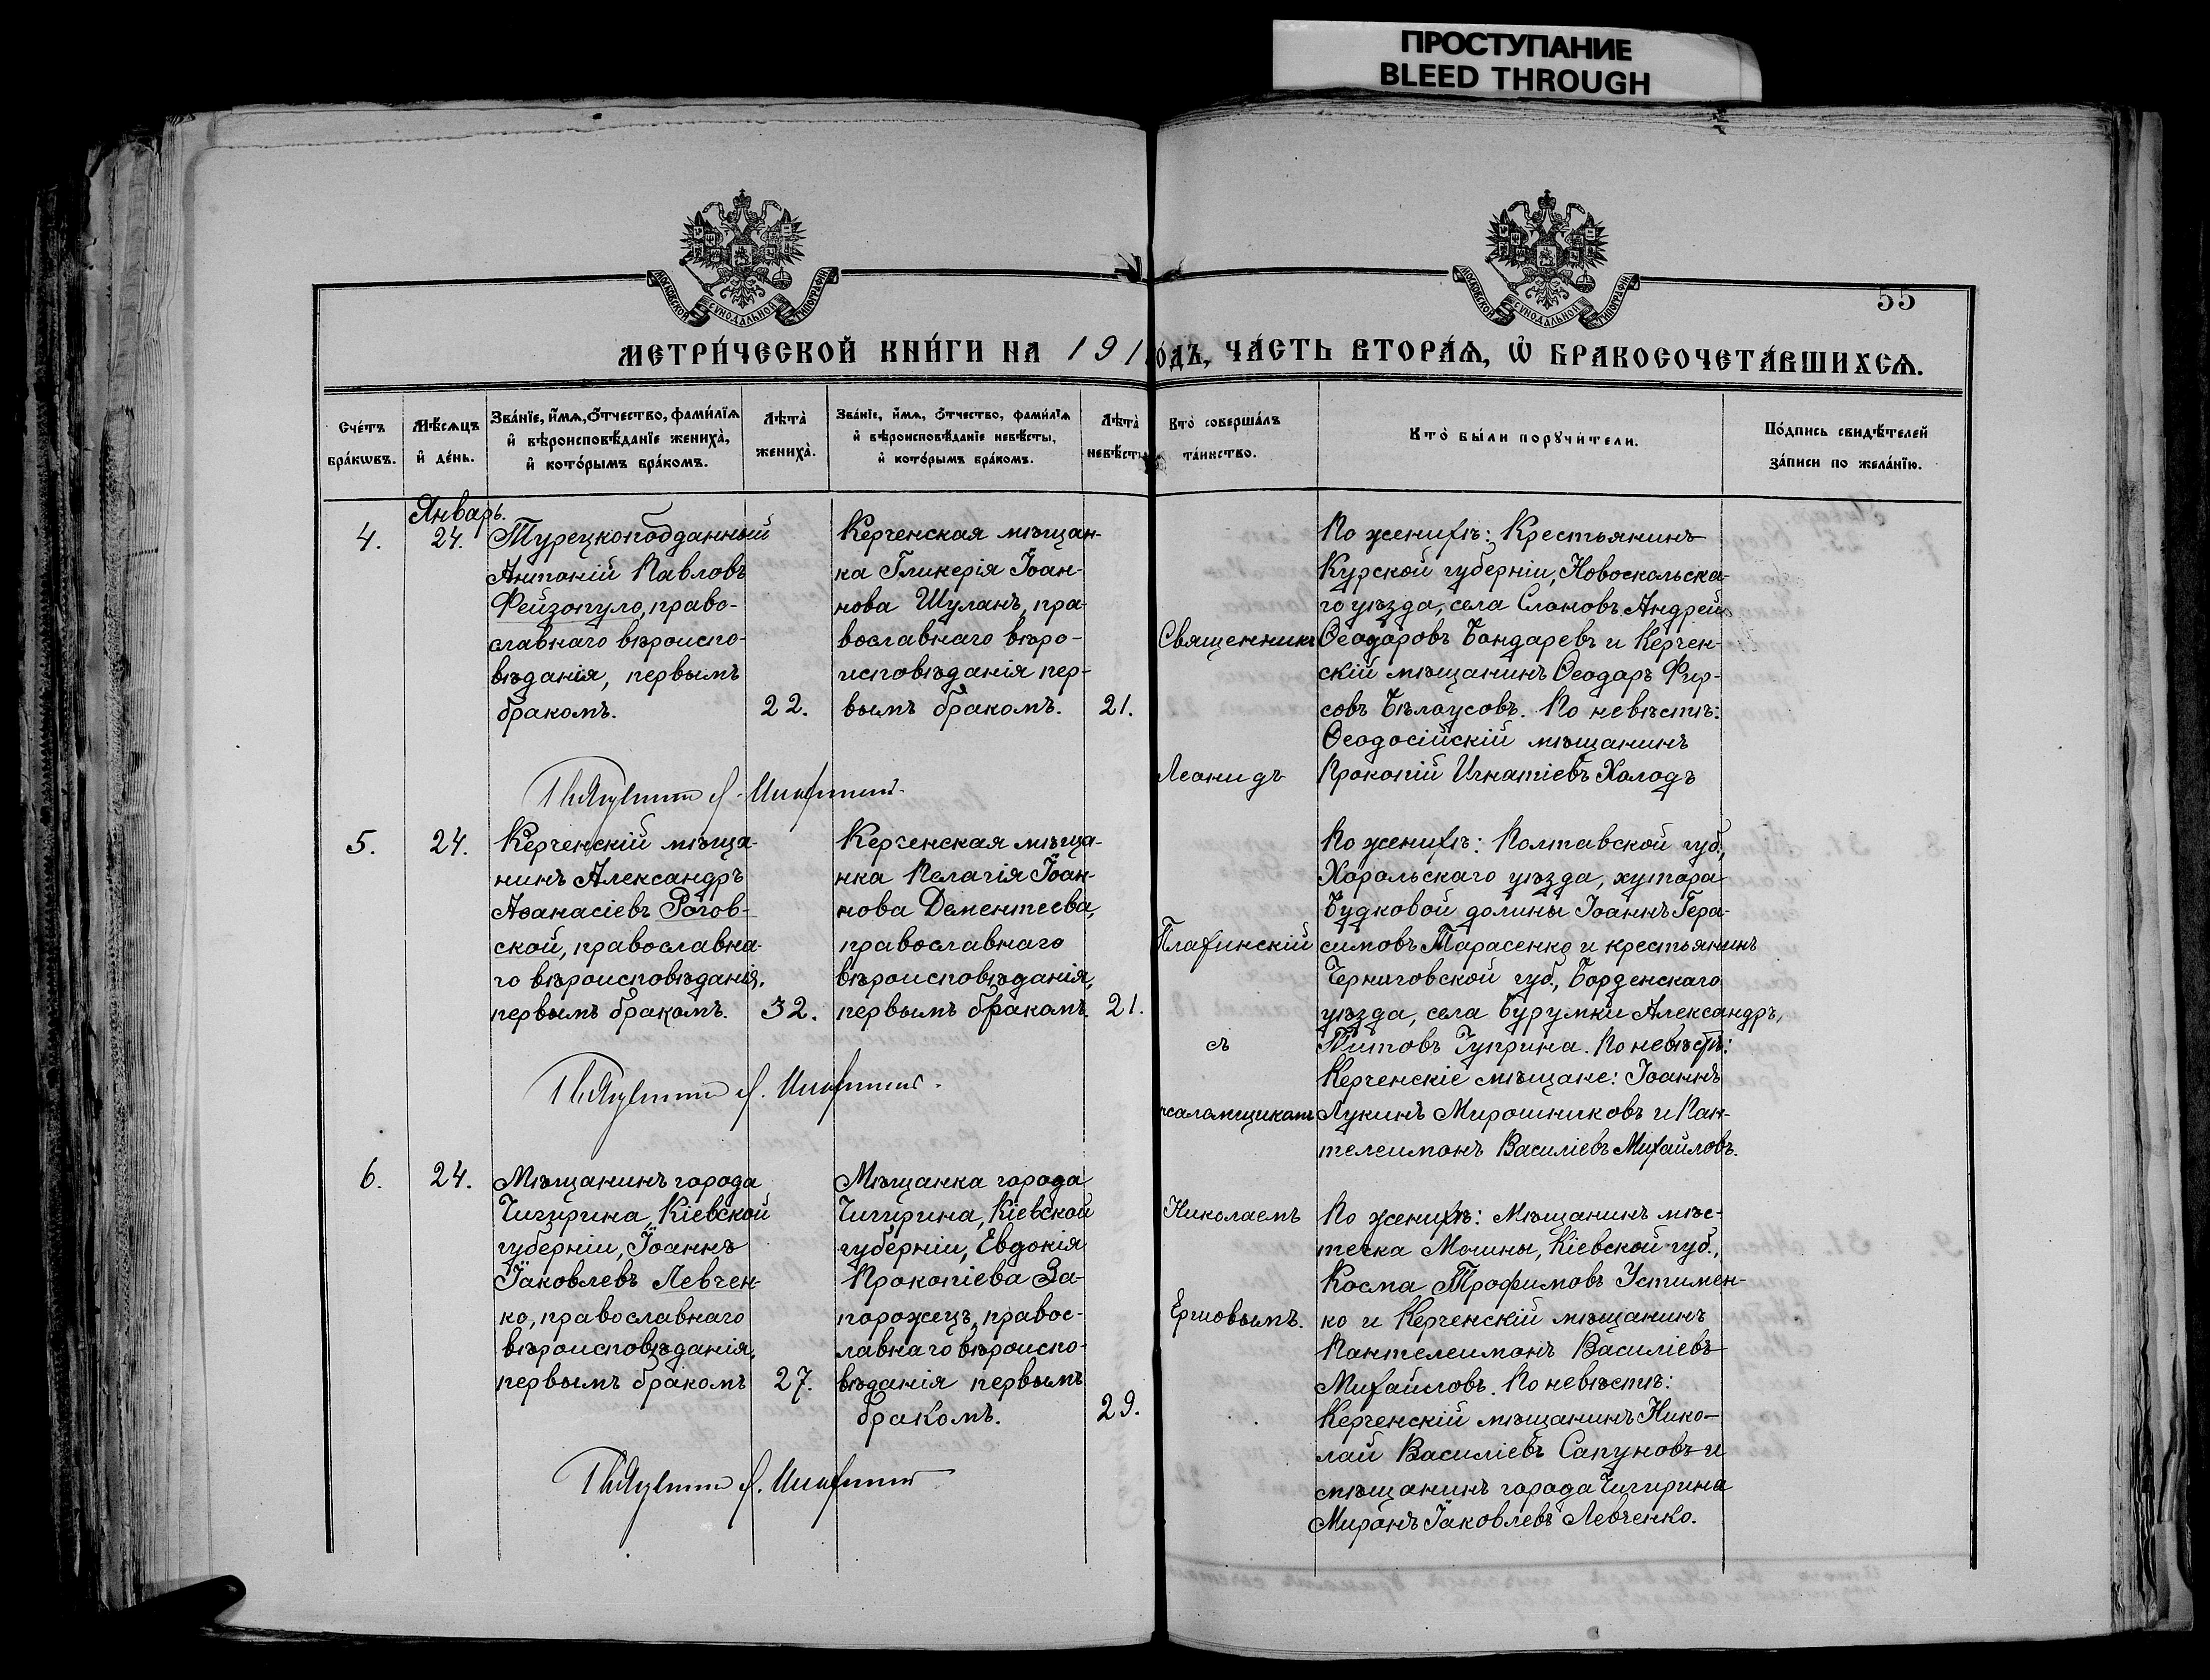 ПРОСТУПАНИЕ
BLEED THROUGH
МОСКОВСКОЙ СѴНОДАЛЬНОЙ ТИПОГРАФІИ
МОСКОВСКОЙ СѴНОДАЛЬНОЙ ТИПОГРАФІИ
55
МЕТРИ́ЧЕСКОЙ КНИ́ГИ НА 191 ОДЪ, ЧА́СТЬ ВТОРА́Ѧ, Ѡ҆ БРАКОСОЧЕТА́ВШИХСѦ.
Сче́тъ
бра́кѡвъ.
Мѣ́сѧцъ
и҆ де́нь.
Зва́нїе, и҆́мѧ, о҆́тчество, фами́лїѧ
и҆ вѣроисповѣ́данїе жениха̀,
и҆ кото́рымъ бра́комъ.
Лѣта̀
жениха̀.
Зва́нїе, и҆́мѧ, о҆́тчество, фами́лїѧ
и҆ вѣроисповѣ́данїе невѣ́сты,
и҆ кото́рымъ бра́комъ.
Лѣта̀
невѣ́сты
Кто̀ соверша́лъ
та́инство.
Кто̀ бы́ли порꙋчи́тели.
По́дпись свидѣ́телей
за́писи по жела́нїю.
Январь.
4.
24.
Турецкоподданный
Антоній Павловъ
Фейзопуло, право-
славнаго вѣроиспо-
вѣданія, первымъ
бракомъ.
22.
Керченская мѣщан-
ка Гликерія Іоан-
нова Шуланъ, пра-
вославнаго вѣро-
исповѣданія пер-
вымъ бракомъ.
21.
По женихѣ: Крестьянинъ
Курской губерніи, Новоскольска-
го уѣзда, села Слоновъ Андрей
Ѳеодоровъ Бондаревъ и Керчен-
скій мѣщанинъ Ѳеодоръ Фир-
совъ Бѣлоусовъ. По невѣстѣ:
Ѳеодосійскій мѣщанинъ
Прокопій Игнатіевъ Холодъ
5.
24.
Керченскій мѣща-
нинъ Александръ
Аѳанасіевъ Рогов-
ской, православна-
го вѣроисповѣданія,
первымъ бракомъ.
32.
Керченская мѣща-
нка Пелагія Іоан-
нова Дементеева,
православнаго
вѣроисповѣданія,
первымъ бракомъ.
21.
По женихѣ: Полтавской губ.,
Хорольскаго уѣзда, хутора
Будковой долины Іоаннъ Гера-
симовъ Тарасенко и крестьянинъ
Черниговской губ., Борденскаго
уѣзда, села Бурумки Александръ,
Титовъ Чуприна. По невѣстѣ:
Керченскіе мѣщане: Іоаннъ
Лукинъ Мирошниковъ и Пан-
телеимонъ Василіевъ Михайловъ.
6.
24.
Мѣщанинъ города
Чигирина, Кіевской
губерніи, Іоаннъ
Іаковлевъ Левчен-
ко, православнаго
вѣроисповѣданія,
первымъ бракомъ
27.
Мѣщанка города
Чигирина, Кіевской
губерніи, Евдокія
Прокопіева За-
порожецъ, правос-
лавнаго вѣроиспо-
вѣданія первымъ
бракомъ.
29.
Священникъ
Леонидъ
съ
псаломщикомъ
Николаемъ
По женихѣ: Мѣщанинъ мѣс-
течка Мошны, Кіевской губ.,
Косма Трофимовъ Устимен-
ко и Керченскій мѣщанинъ
Пантелеимонъ Василіевъ
Михайловъ. По невѣстѣ:
Керченскій мѣщанинъ Нико-
лай Василіевъ Сапуновъ и
мѣщанинъ города Чигирина
Миронъ Іаковлевъ Левченко.